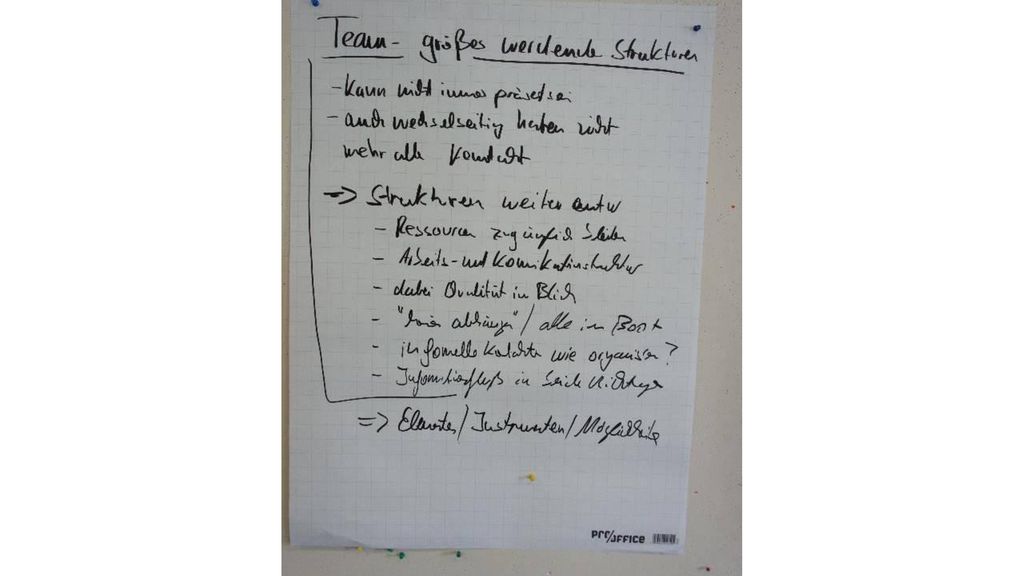 Team - größes werdende Strukturen
- Kann nicht immer präsent sei
- auch wechselseitig haben nicht
mehr alle Kontakt
=> Strukturen weiter entw
- Ressourcen
- Arbeits- und
- dabei Qualität im Blick
- " / alle im Boot
- informelle Kontakte wie organisier?
- Informationsfluß in beide Richtunge
=> Elemente / Instrumenten / Möglichkeite
pro/office